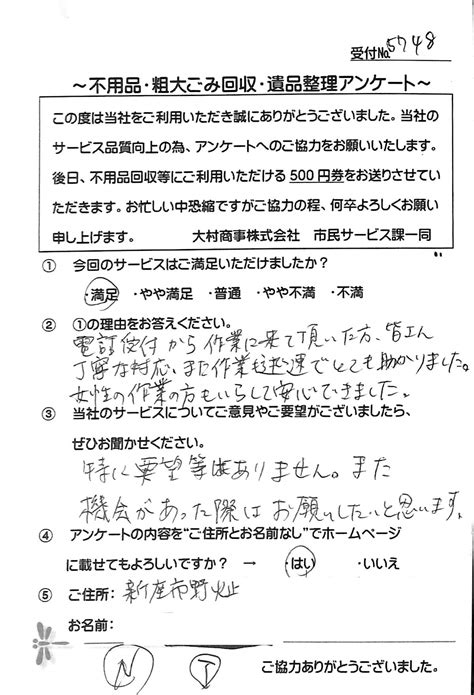 受付No.5748
～不用品・粗大ごみ回収・遺品整理アンケート～
この度は当社をご利用いただき誠にありがとうございました。当社の
サービス品質向上の為、アンケートへのご協力をお願いいたします。
後日、不用品回収等にご利用いただける500円券をお送りさせてい
ただきます。お忙しい中恐縮ですがご協力の程、何卒よろしくお願い
申し上げます。 大村商事株式会社 市民サービス課一同
① 今回のサービスはご満足いただけましたか？
・満足 ・やや満足 ・普通 ・やや不満 ・不満
② ①の理由をお答えください。
電話受付から作業に来て頂いた方、皆さん
丁寧な対応、また作業も迅速でとても助かりました。
女性の作業の方もいらして安心できました。
③ 当社のサービスについてご意見やご要望がございましたら、
ぜひお聞かせください。
特に要望等はありません。また
機会があった際はお願いしたいと思います。
④ アンケートの内容を“ご住所とお名前なし”でホームページ
に載せてもよろしいですか？ → ・はい ・いいえ
⑤ ご住所：新座市野火止
お名前：
N T
ご協力ありがとうございました。